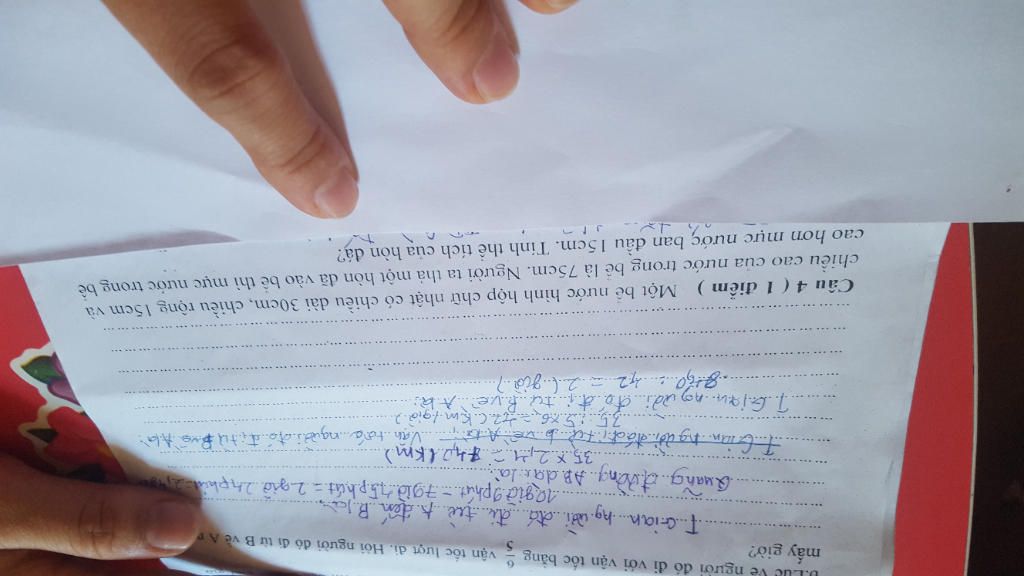 b.Lúc về người đó đi với vận tốc bằng 6/5 vận tốc lượt đi. Hỏi người đó đi từ B về A
mấy giờ?
T Gian người đó đi từ A đến B là:
10 giờ 9 phút - 7 giờ 45 phút = 2 giờ 24 phút = 2,4
Quãng đường AB dài là:
35 × 2,4 = 84 (km)
T Gian người đó đi từ B về A là: Vận tốc người đó đi từ B về A là:
35 : 5 × 6 = 42 (km/giờ)
T Gian người đó đi từ B về A là:
84 : 42 = 2 (giờ)
Câu 4 ( 1 điểm ) Một bể nước hình hộp chữ nhật có chiều dài 30cm, chiều rộng 15cm và
chiều cao của nước trong bể là 75cm. Người ta thả một hòn đá vào bể thì mực nước trong bể
cao hơn mực nước ban đầu 15cm. Tính thể tích của hòn đá?